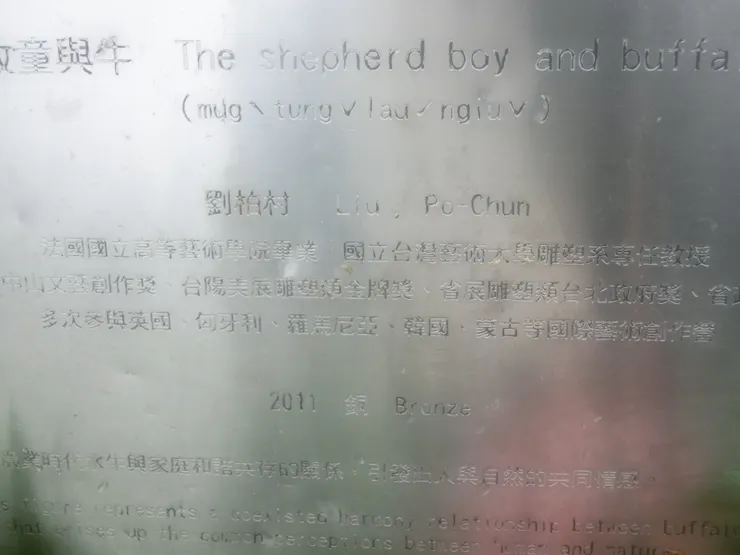 牧童與牛 The shepherd boy and buffa
(mug ˋ tung ˇ lau ˊ ngiu ˇ )
劉柏村 Liu, Po-Chun
法國國立高等藝術學院畢業 國立台灣藝術大學雕塑系專任教授
中山文藝創作獎、台陽美展雕塑類金牌獎、省展雕塑類台北政府獎、省
多次參與英國、匈牙利、羅馬尼亞、韓國、蒙古等國際藝術創作營
2011 銅 Bronze
農業時代水牛與家庭和諧共存的關係,引發出人與自然的共同情感。
figure represents a coexisted harmony relationship between buffalo
up the common perceptions between human and